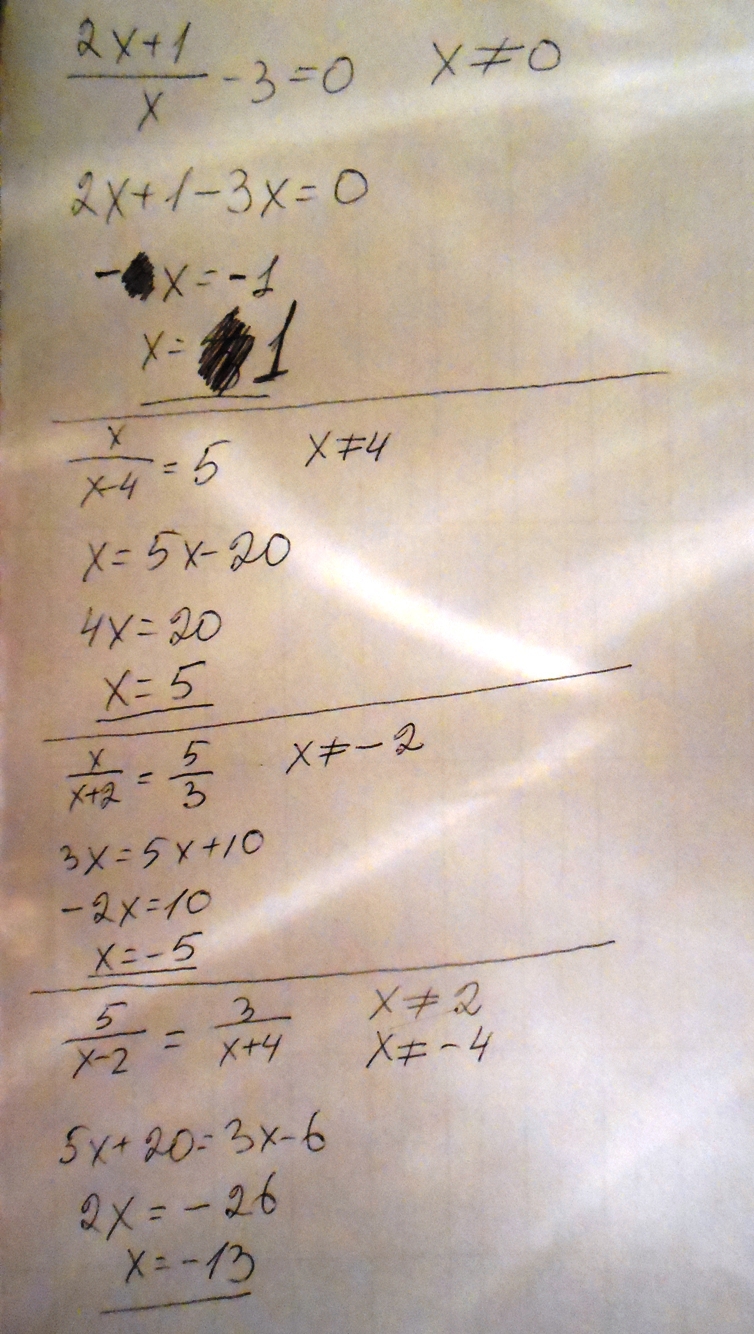 (2x+1)/x - 3 = 0    x ≠ 0
2x+1-3x=0
-x=-1
x= 1
x/(x-4) = 5    x ≠ 4
x=5x-20
4x=20
x=5
x/(x+2) = 5/3    x ≠ -2
3x=5x+10
-2x=10
x=-5
5/(x-2) = 3/(x+4)    x ≠ 2
x ≠ -4
5x+20=3x-6
2x=-26
x=-13